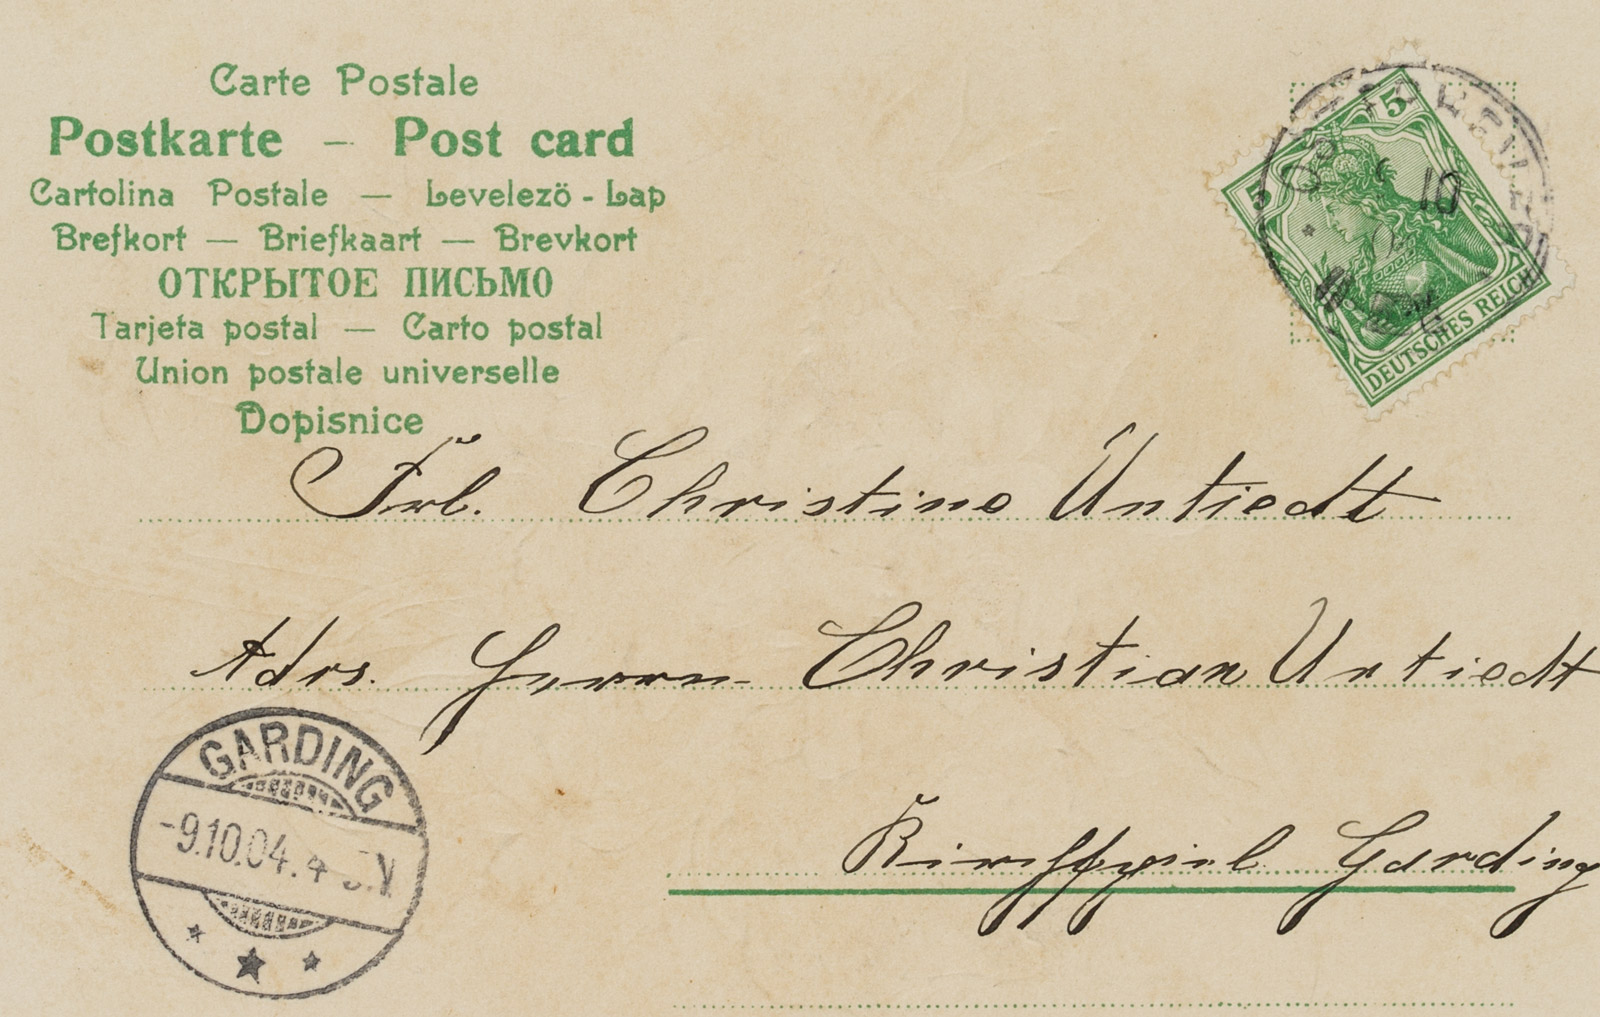 Carte Postale
Postkarte — Post card
Cartolina Postale — Levelező - Lap
Brefkort — Briefkaart — Brevkort
ОТКРЫТОЕ ПИСЬМО
Tarjeta postal — Carto postal
Union postale universelle
Dopisnice
5
5
10
DEUTSCHES REICH
Frl. Christine Untiedt
Adrs. Herrn Christian Untiedt
GARDING
-9.10.04. 4-5.N
Kirchspiel Garding